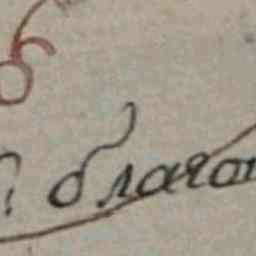 б
благо